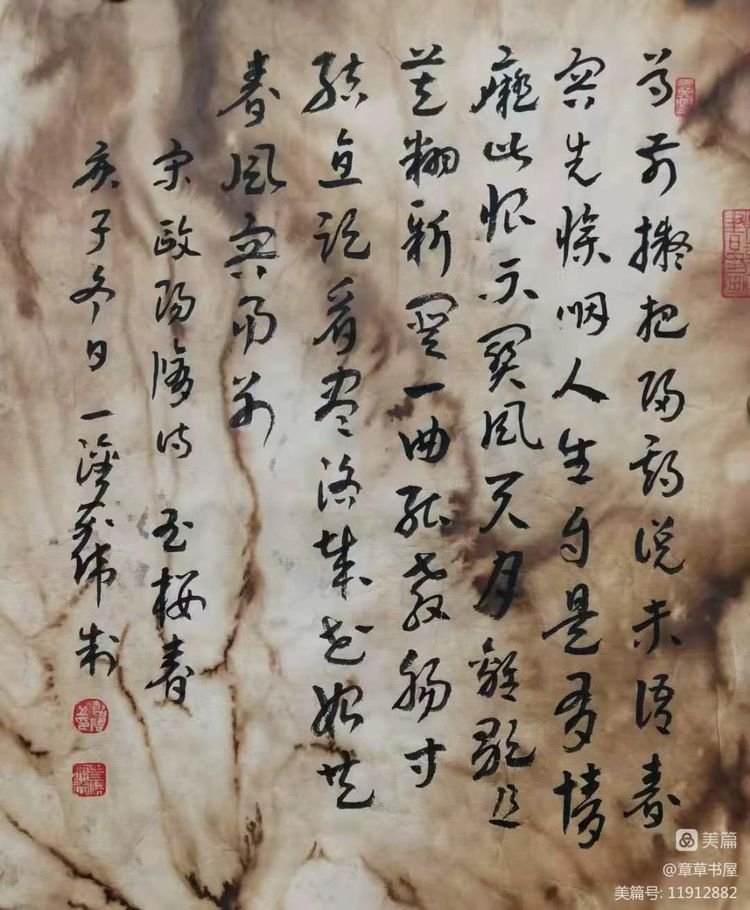 尊前擬把歸期说未语春
容先惨咽人生自是有情
癡此恨不関風与月離歌且
莫翻新闋一曲能教腸寸
結直须看尽洛城花始共
春風容易别
宋歐陽修诗玉楼春
庚子冬日一
美篇
@章草书屋
美篇号: 11912882